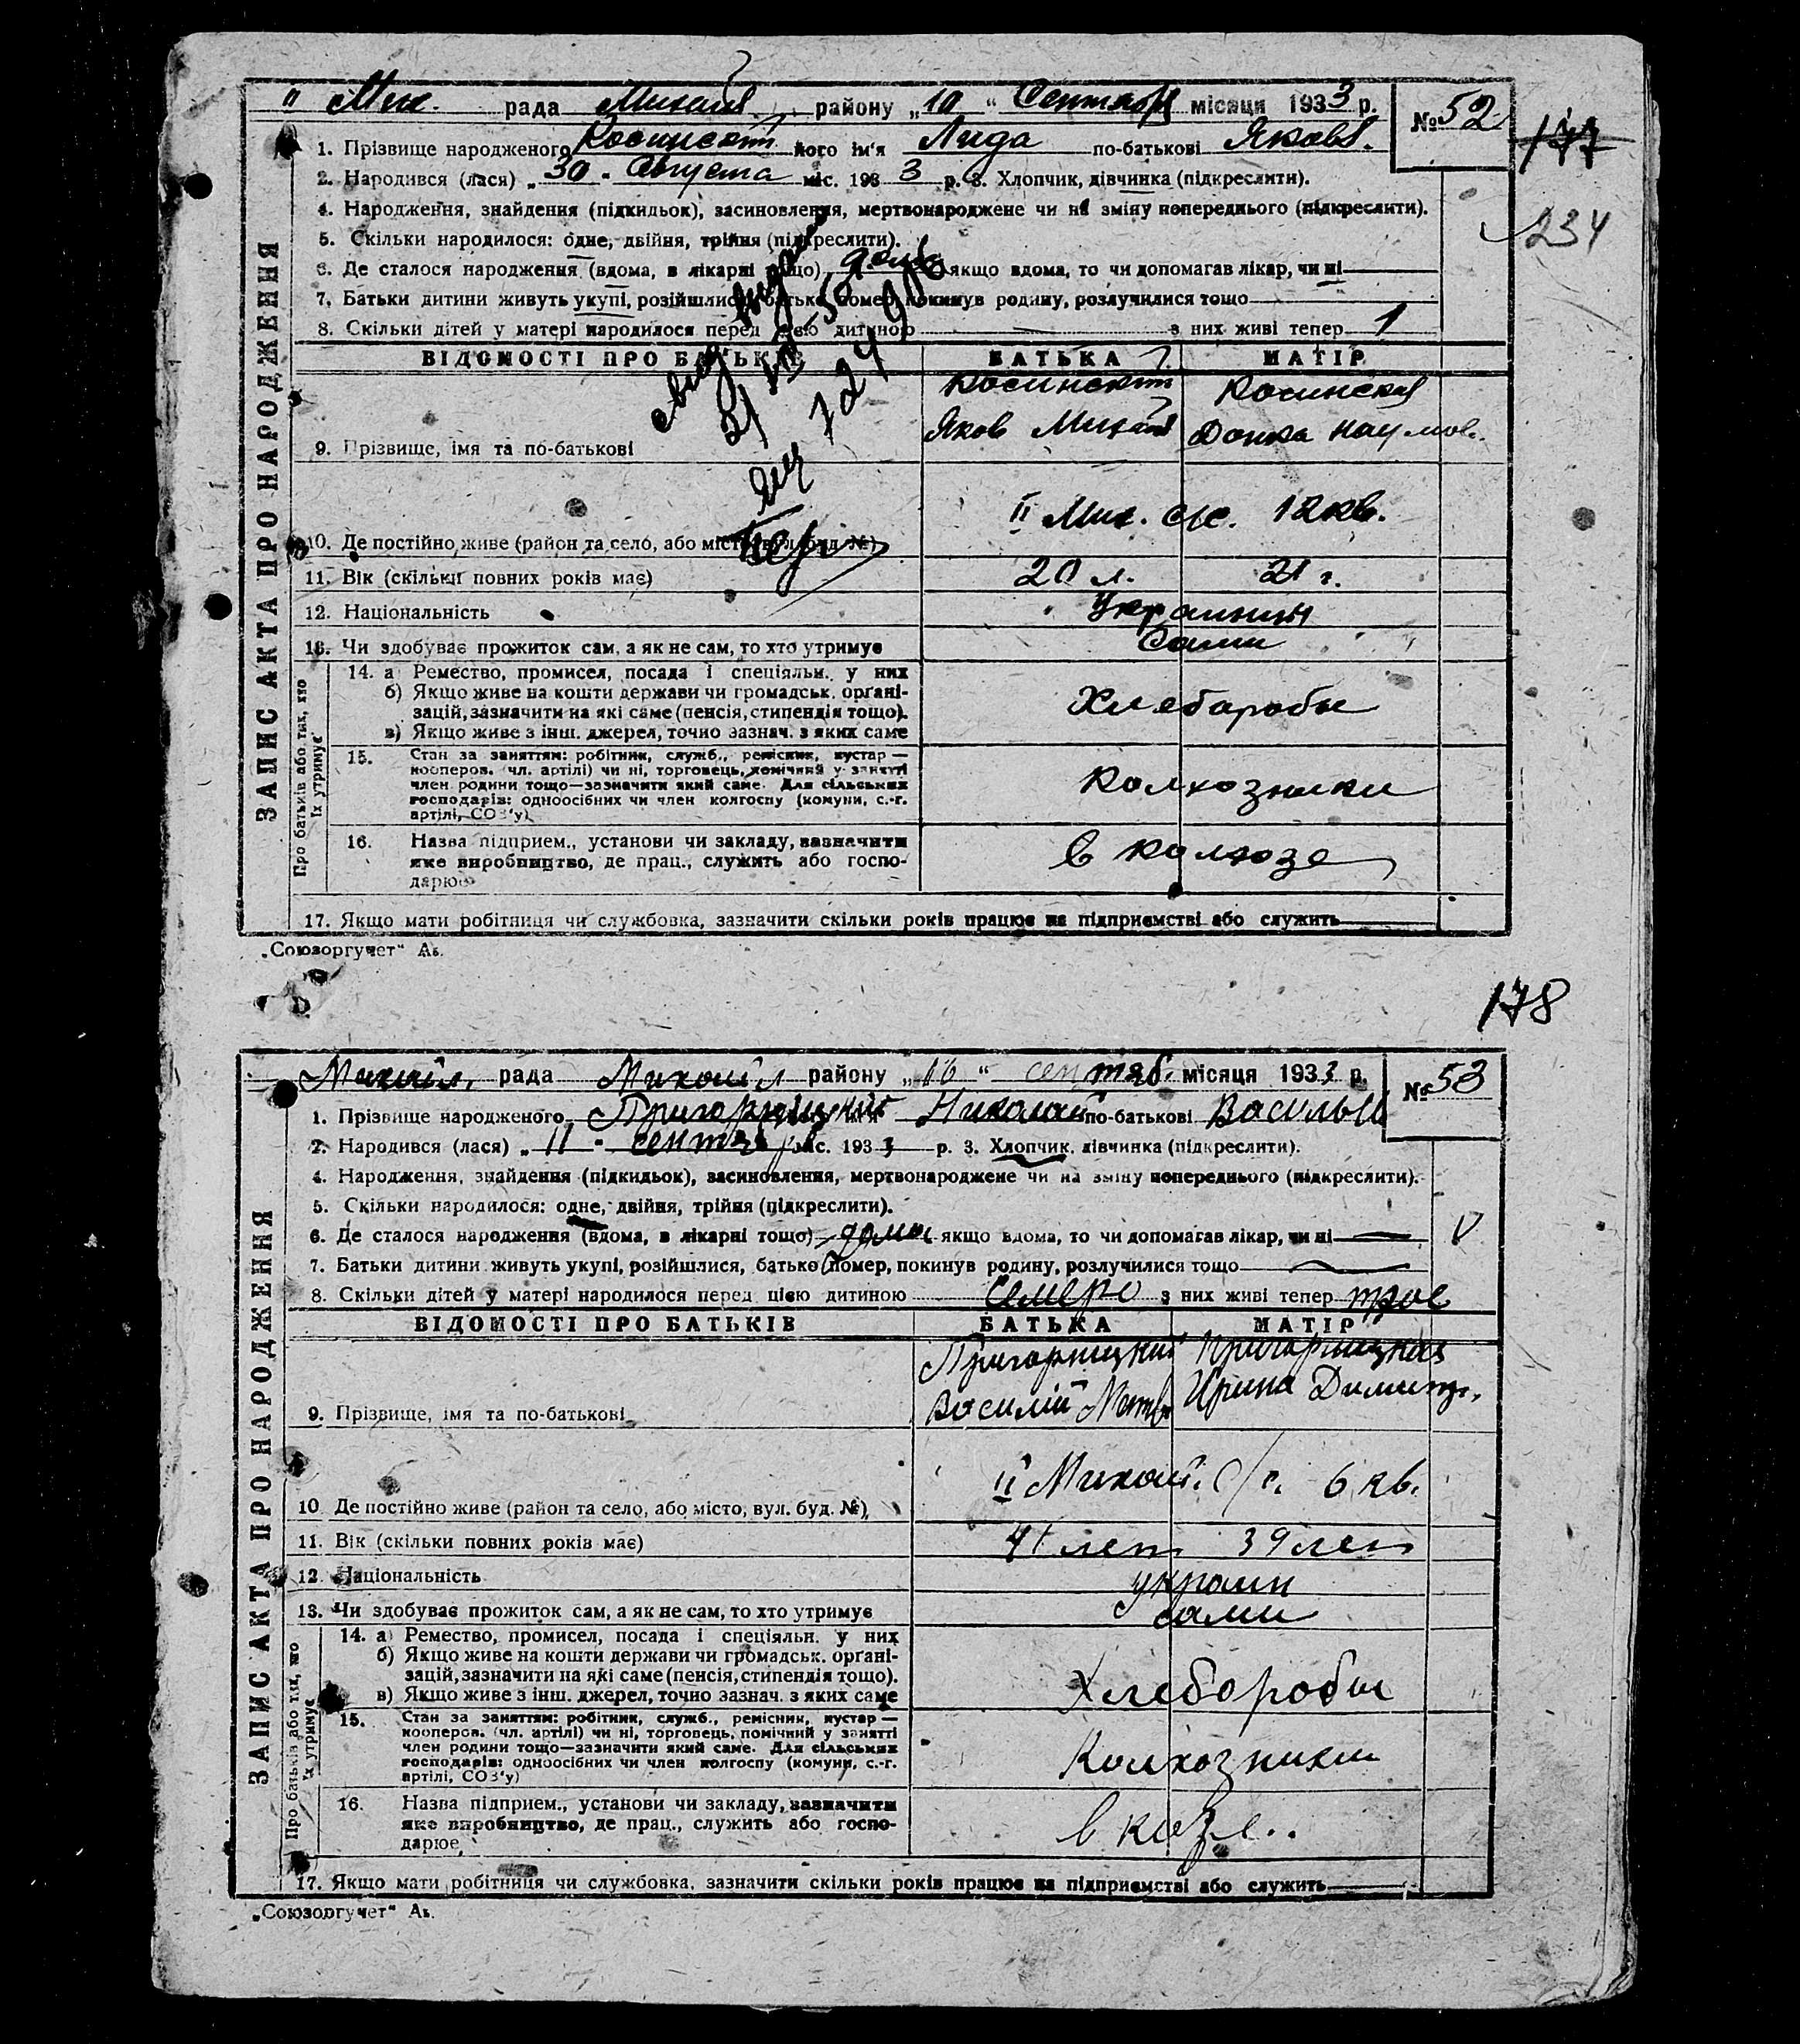 ЗАПИС АКТА ПРО НАРОДЖЕННЯ
II Мих. рада Михайл. району „10“ Сентября місяця 1933 р. № 52
177
1. Прізвище народженого його ім'я Лида по-батькові Яковл.
2. Народився (лася) „30" Августа міс. 1933 р. 3. Хлопчик, дівчинка (підкреслити).
4. Народження, знайдення (підкидьок), засиновлення, мертвонароджене чи на зміну попереднього (підкреслити).
234
5. Скільки народилося: одне, двійня, трійня (підкреслити).
6. Де сталося народження (вдома, в лікарні тощо) дома якщо вдома, то чи допомагав лікар, чи ні
7. Батьки дитини живуть укупі, розійшлися, батько помер, покинув родину, розлучилися тощо
8. Скільки дітей у матері народилося перед цією дитиною — з них живі тепер 1
ВІДОМОСТІ ПРО БАТЬКІВ БАТЬКА МАТІР
Косинский Косинская
Яков Михайл Донка Наумов.
9. Прізвище, імя та по-батькові
II Мих. с/с. 12 кв.
10. Де постійно живе (район та село, або місто, вул. буд. №)
11. Вік (скільки повних років має) 20 л. 21 г.
12. Національність Украинцы
13. Чи здобуває прожиток сам, а як не сам, то хто утримує Сами
Про батьків або тих, хто їх утримує
14. а) Ремество, промисел, посада і спеціяльн. у них
б) Якщо живе на кошти держави чи громадськ. органі-
зацій, зазначити на які саме (пенсія, стипендія тощо). Хлеборобы
в) Якщо живе з інш. джерел, точно зазнач. з яких саме
15. Стан за заняттям: робітник, служб., ремісник, кустар —
кооперов. (чл. артілі) чи ні, торговець, помічний у занятті
член родини тощо—зазначити який саме. Для сільських Колхозники
господарів: одноосібних чи член колгоспу (комуни, с.-г.
артілі, СОЗ'у)
16. Назва підприєм., установи чи закладу, зазначити
яке виробництво, де прац., служить або госпо- в колхозе
дарює
17. Якщо мати робітниця чи службовка, зазначити скільки років працює на підприємстві або служить
„Союзоргучет“ Аь.
178
ЗАПИС АКТА ПРО НАРОДЖЕННЯ
Михайл. рада Михайл району „16“ сентяб. місяця 1933 р. № 53
1. Прізвище народженого Пригорницкий Николай по-батькові Васильев
2. Народився (лася) „11" сентября міс. 1933 р. 3. Хлопчик, дівчинка (підкреслити).
4. Народження, знайдення (підкидьок), засиновлення, мертвонароджене чи на зміну попереднього (підкреслити).
5. Скільки народилося: одне, двійня, трійня (підкреслити).
6. Де сталося народження (вдома, в лікарні тощо) дома якщо вдома, то чи допомагав лікар, чи ні — V
7. Батьки дитини живуть укупі, розійшлися, батько помер, покинув родину, розлучилися тощо
8. Скільки дітей у матері народилося перед цією дитиною Семеро з них живі тепер трое
ВІДОМОСТІ ПРО БАТЬКІВ БАТЬКА МАТІР
Пригорницкий Пригорницкая
Василий Матв Ирина Димитр.
9. Прізвище, імя та по-батькові
II Михайл. С/с. 6 кв.
10. Де постійно живе (район та село, або місто, вул. буд. №)
11. Вік (скільки повних років має) 41 лет 39 лет
12. Національність украин
13. Чи здобуває прожиток сам, а як не сам, то хто утримує сами
Про батьків або тих, що їх утримує
14. а) Ремество, промисел, посада і спеціяльн. у них
б) Якщо живе на кошти держави чи громадськ. органі-
зацій, зазначити на які саме (пенсія, стипендія тощо). Хлеборобы
в) Якщо живе з інш. джерел, точно зазнач. з яких саме
15. Стан за заняттям: робітник, служб., ремісник, кустар —
кооперов. (чл. артілі) чи ні, торговець, помічний у занятті
член родини тощо—зазначити який саме. Для сільських Колхозники
господарів: одноосібних чи член колгоспу (комуни, с.-г.
артілі, СОЗ'у)
16. Назва підприєм., установи чи закладу, зазначити
яке виробництво, де прац., служить або госпо- в
дарює
17. Якщо мати робітниця чи службовка, зазначити скільки років працює на підприємстві або служить
„Союзоргучет“ Аь.